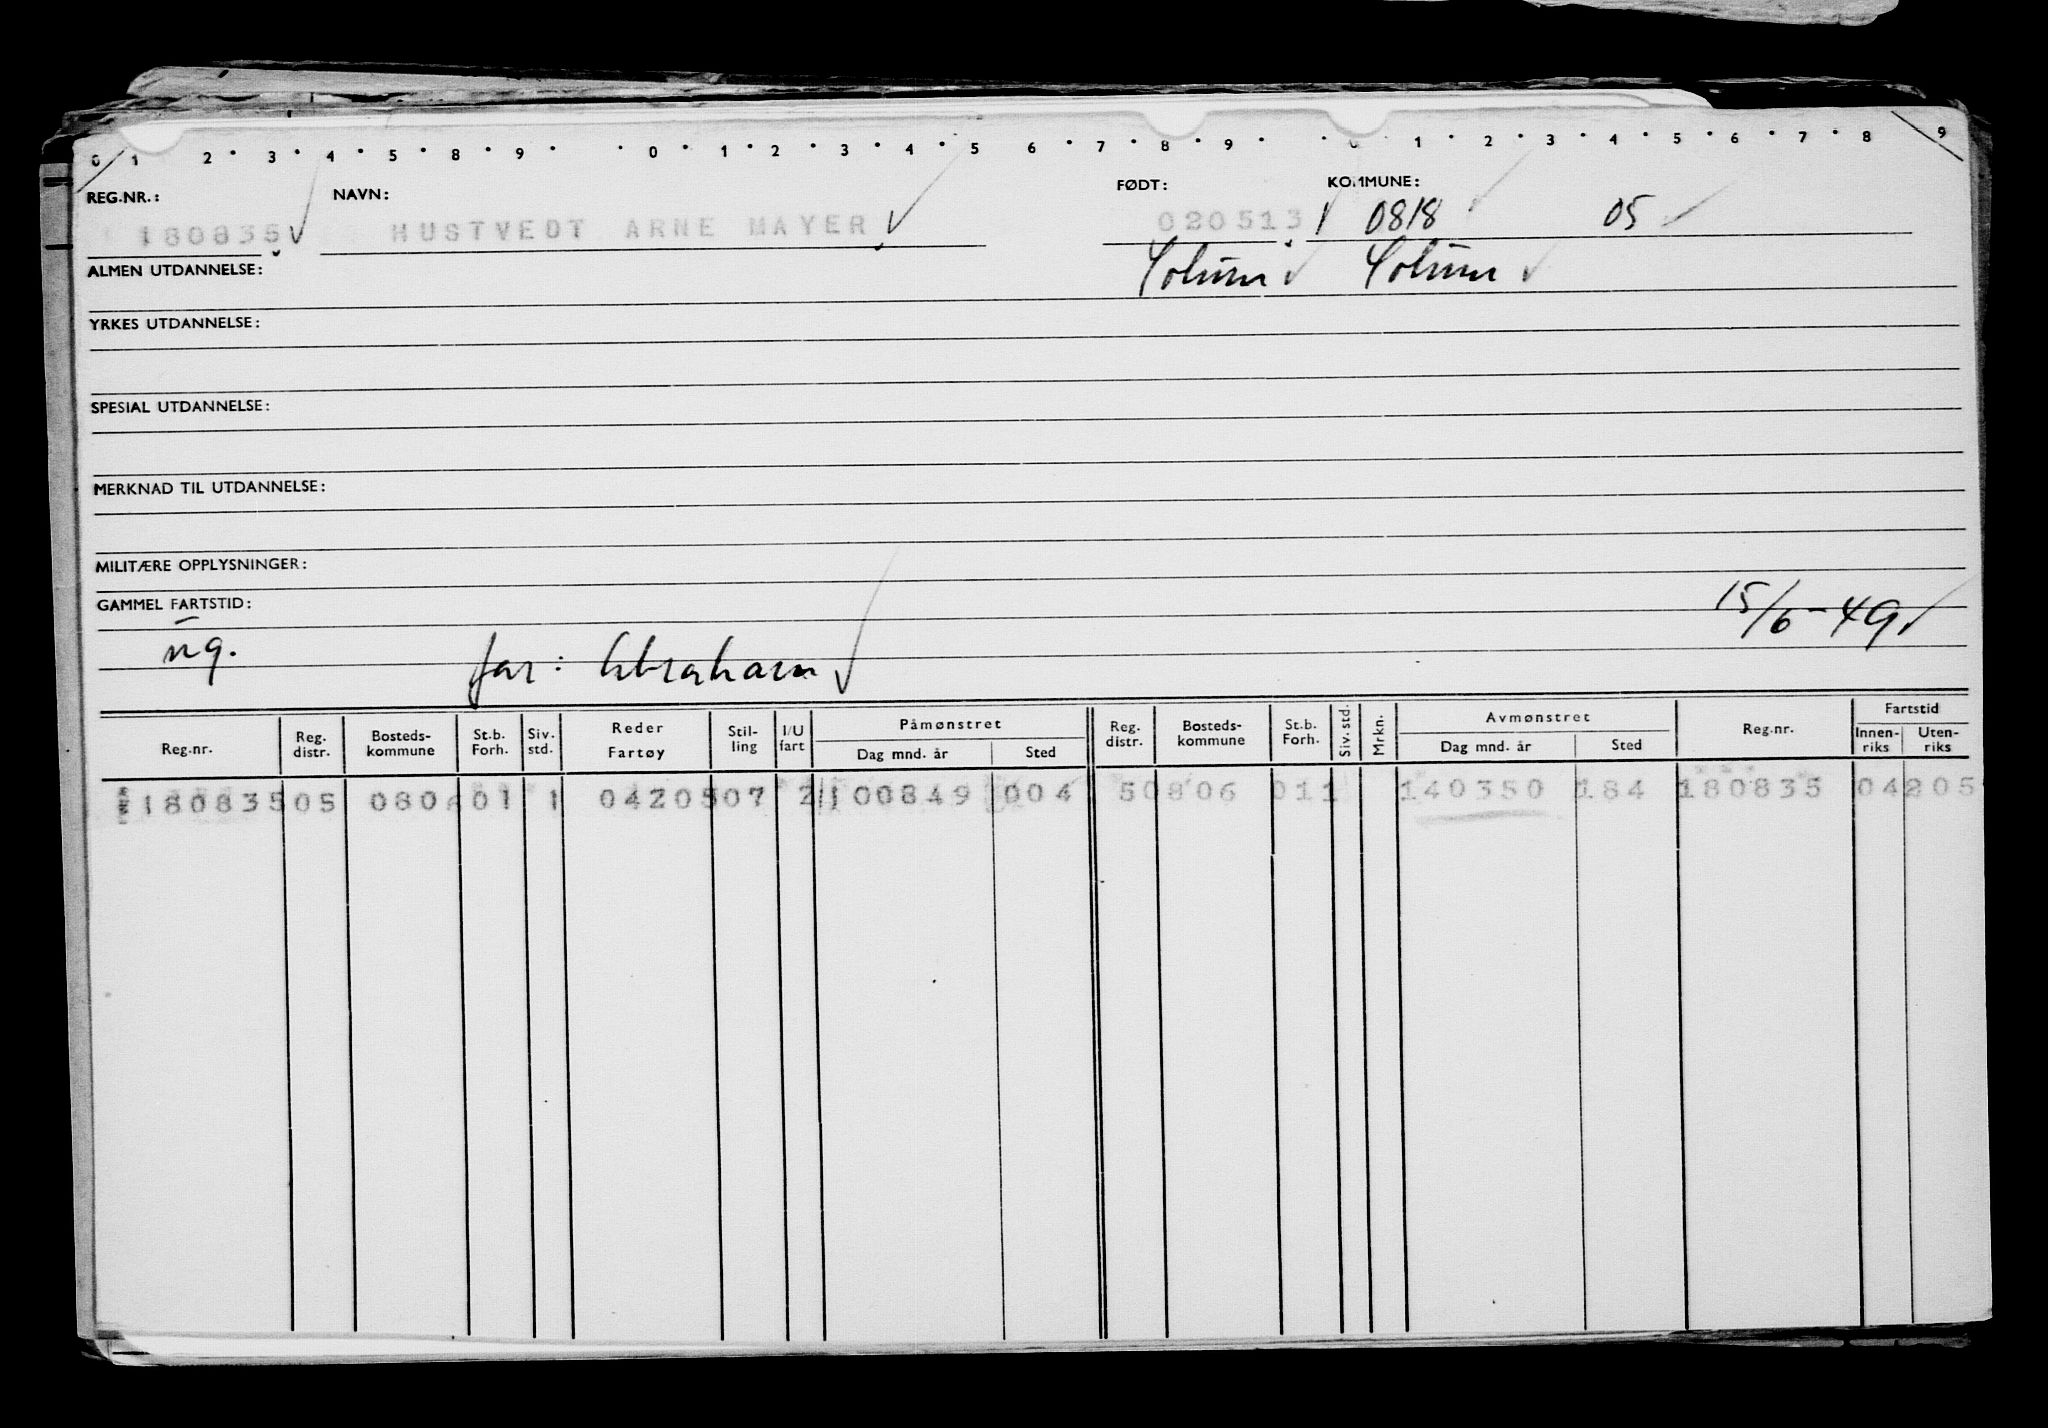 0 1 2 • 3 • 4 • 5 • 8 • 9 • • 0 • 1 • 2 • 3 • 4 • 5 6 • 7 • 8 • 9 • • 0 1 • 2 • 3 • 4 • 5 • 6 • 7 • 8 9
REG.NR.: NAVN: FØDT: KOMMUNE:
180835 HUSTVEDT ARNE MAYER 020513 0818 05
ALMEN UTDANNELSE: Solum Solum
YRKES UTDANNELSE:
SPESIAL UTDANNELSE:
MERKNAD TIL UTDANNELSE:
MILITÆRE OPPLYSNINGER:
GAMMEL FARTSTID: 15/6-49
ng. far: Abraham
Reg.nr. Reg. distr. Bosteds-kommune St.b. Forh. Siv. std. Reder Fartøy Stil-ling I/U fart Påmønstret Dag mnd. år Sted Reg. distr. Bosteds-kommune St.b. Forh. Siv. std. Mrkn. Avmønstret Dag mnd. år Sted Reg.nr. Fartstid Innen-riks Uten-riks
180835 05 0806 01 1 04205 07 2 100849 004 5 0806 01 1 140350 184 180835 04205